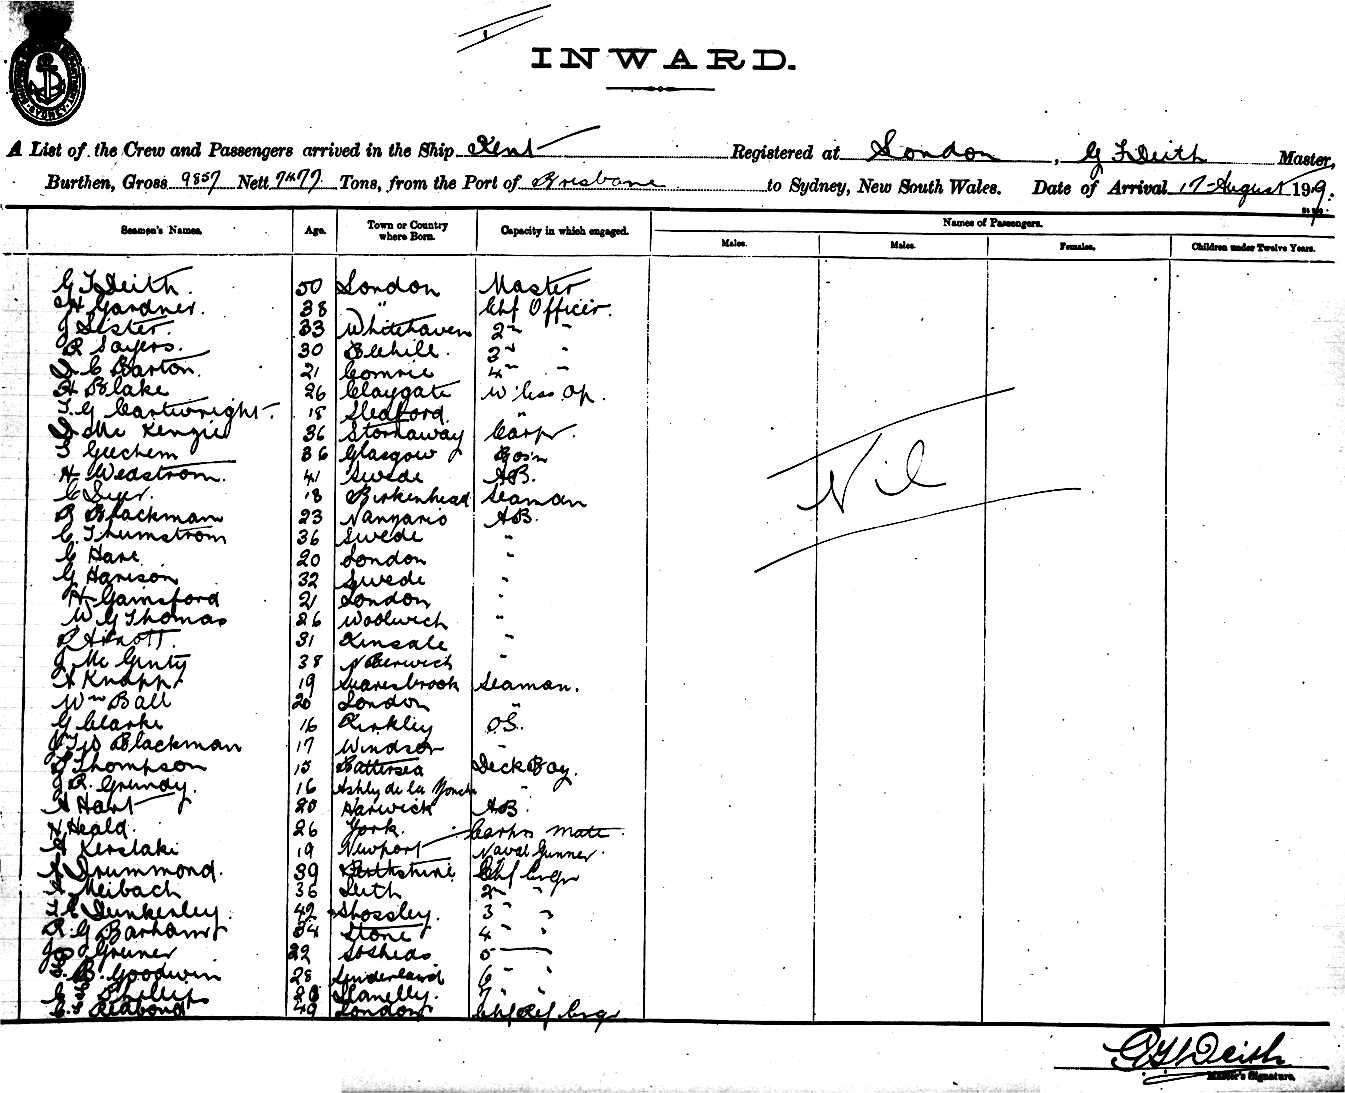 INWARD.
A List of the Crew and Passengers arrived in the Ship Kent Registered at London, G T Deith Master,
Burthen, Gross 9857 Nett 7477 Tons, from the Port of Brisbane to Sydney, New South Wales. Date of Arrival 17 August 1919.
Seamen's Names. Age. Town or Country where Born. Capacity in which engaged. Names of Passengers.
Males. Males. Females. Children under Twelve Years.
G T Deith. 50 London Master
H Gardner. 38 " Chf Officer.
J Lister. 33 Whitehaven 2nd "
R Sayers. 30 Bexhill. 3rd "
C Barton. 21 Comrie 4th "
H Blake 26 Claygate W'less Op.
T. G Cartwright. 18 Sleaford "
Mc Kenzie 36 Stornaway Carpr.
36 Glasgow Bosn
H Wedstrom. 41 Swede AB.
C Dyer. 18 Birkenhead Seaman
R Blackman 23 AB.
C. Thumstrom 36 Swede "
C Hare 20 London "
G Harison 32 Swede "
H Gainsford 21 London "
W G Thomas 26 Woolwich "
31 Kinsale "
J Mc Ginty 38 N Berwich "
A Knapp 19 Snaresbrook Seaman.
Wm Ball 20 London "
G Clarke 16 Kirkley O.S.
Blackman 17 Windsor "
Thompson 15 Battersea Deck Boy.
J R. Grundy. 16 Ashby de la Zouch "
A Hart 20 Harwick AB.
H Heald. 26 York. Carprs mate.
A Kerslake 19 Newport Naval Gunner.
Drummond. 39 Perthshire Chf Engr
A Meibach 36 Leith 2nd "
Dunkerley. 42 3 "
R. G Barham 34 Stone 4 "
Gruner 22 So Shields 5
B. Goodwin 28 Sunderland 6 "
Phillips 28 Llanelly. 7 "
Redbond 49 London Chf Ref Engr
Nil
G T Deith
Master's Signature.